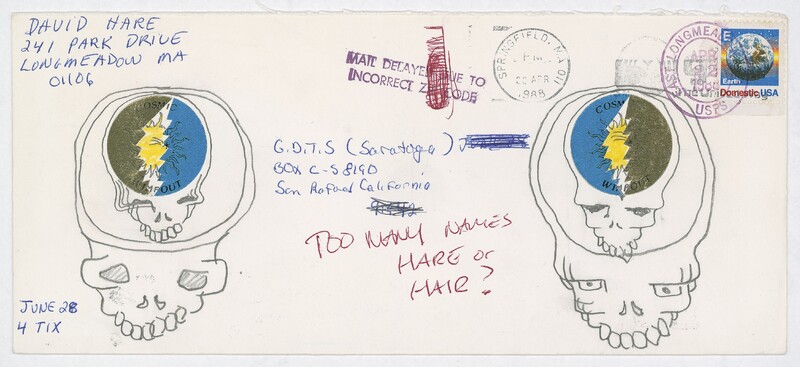 DAVID HARE
241 PARK DRIVE
LONGMEADOW MA
01106
MAIL DELAYED DUE TO
INCORRECT ZIP CODE
SPRINGFIELD, MA 011
PM
APR
1988
EAST LONGMEADOW
USPS
E
Earth
Domestic USA
COSMIC
WIMPOUT
G.D.T.S (Saratoga)
BOX C-S 8190
San Rafael California
COSMIC
WIMPOUT
TOO MANY NAMES
HARE or
HAIR?
JUNE 28
4 TIX